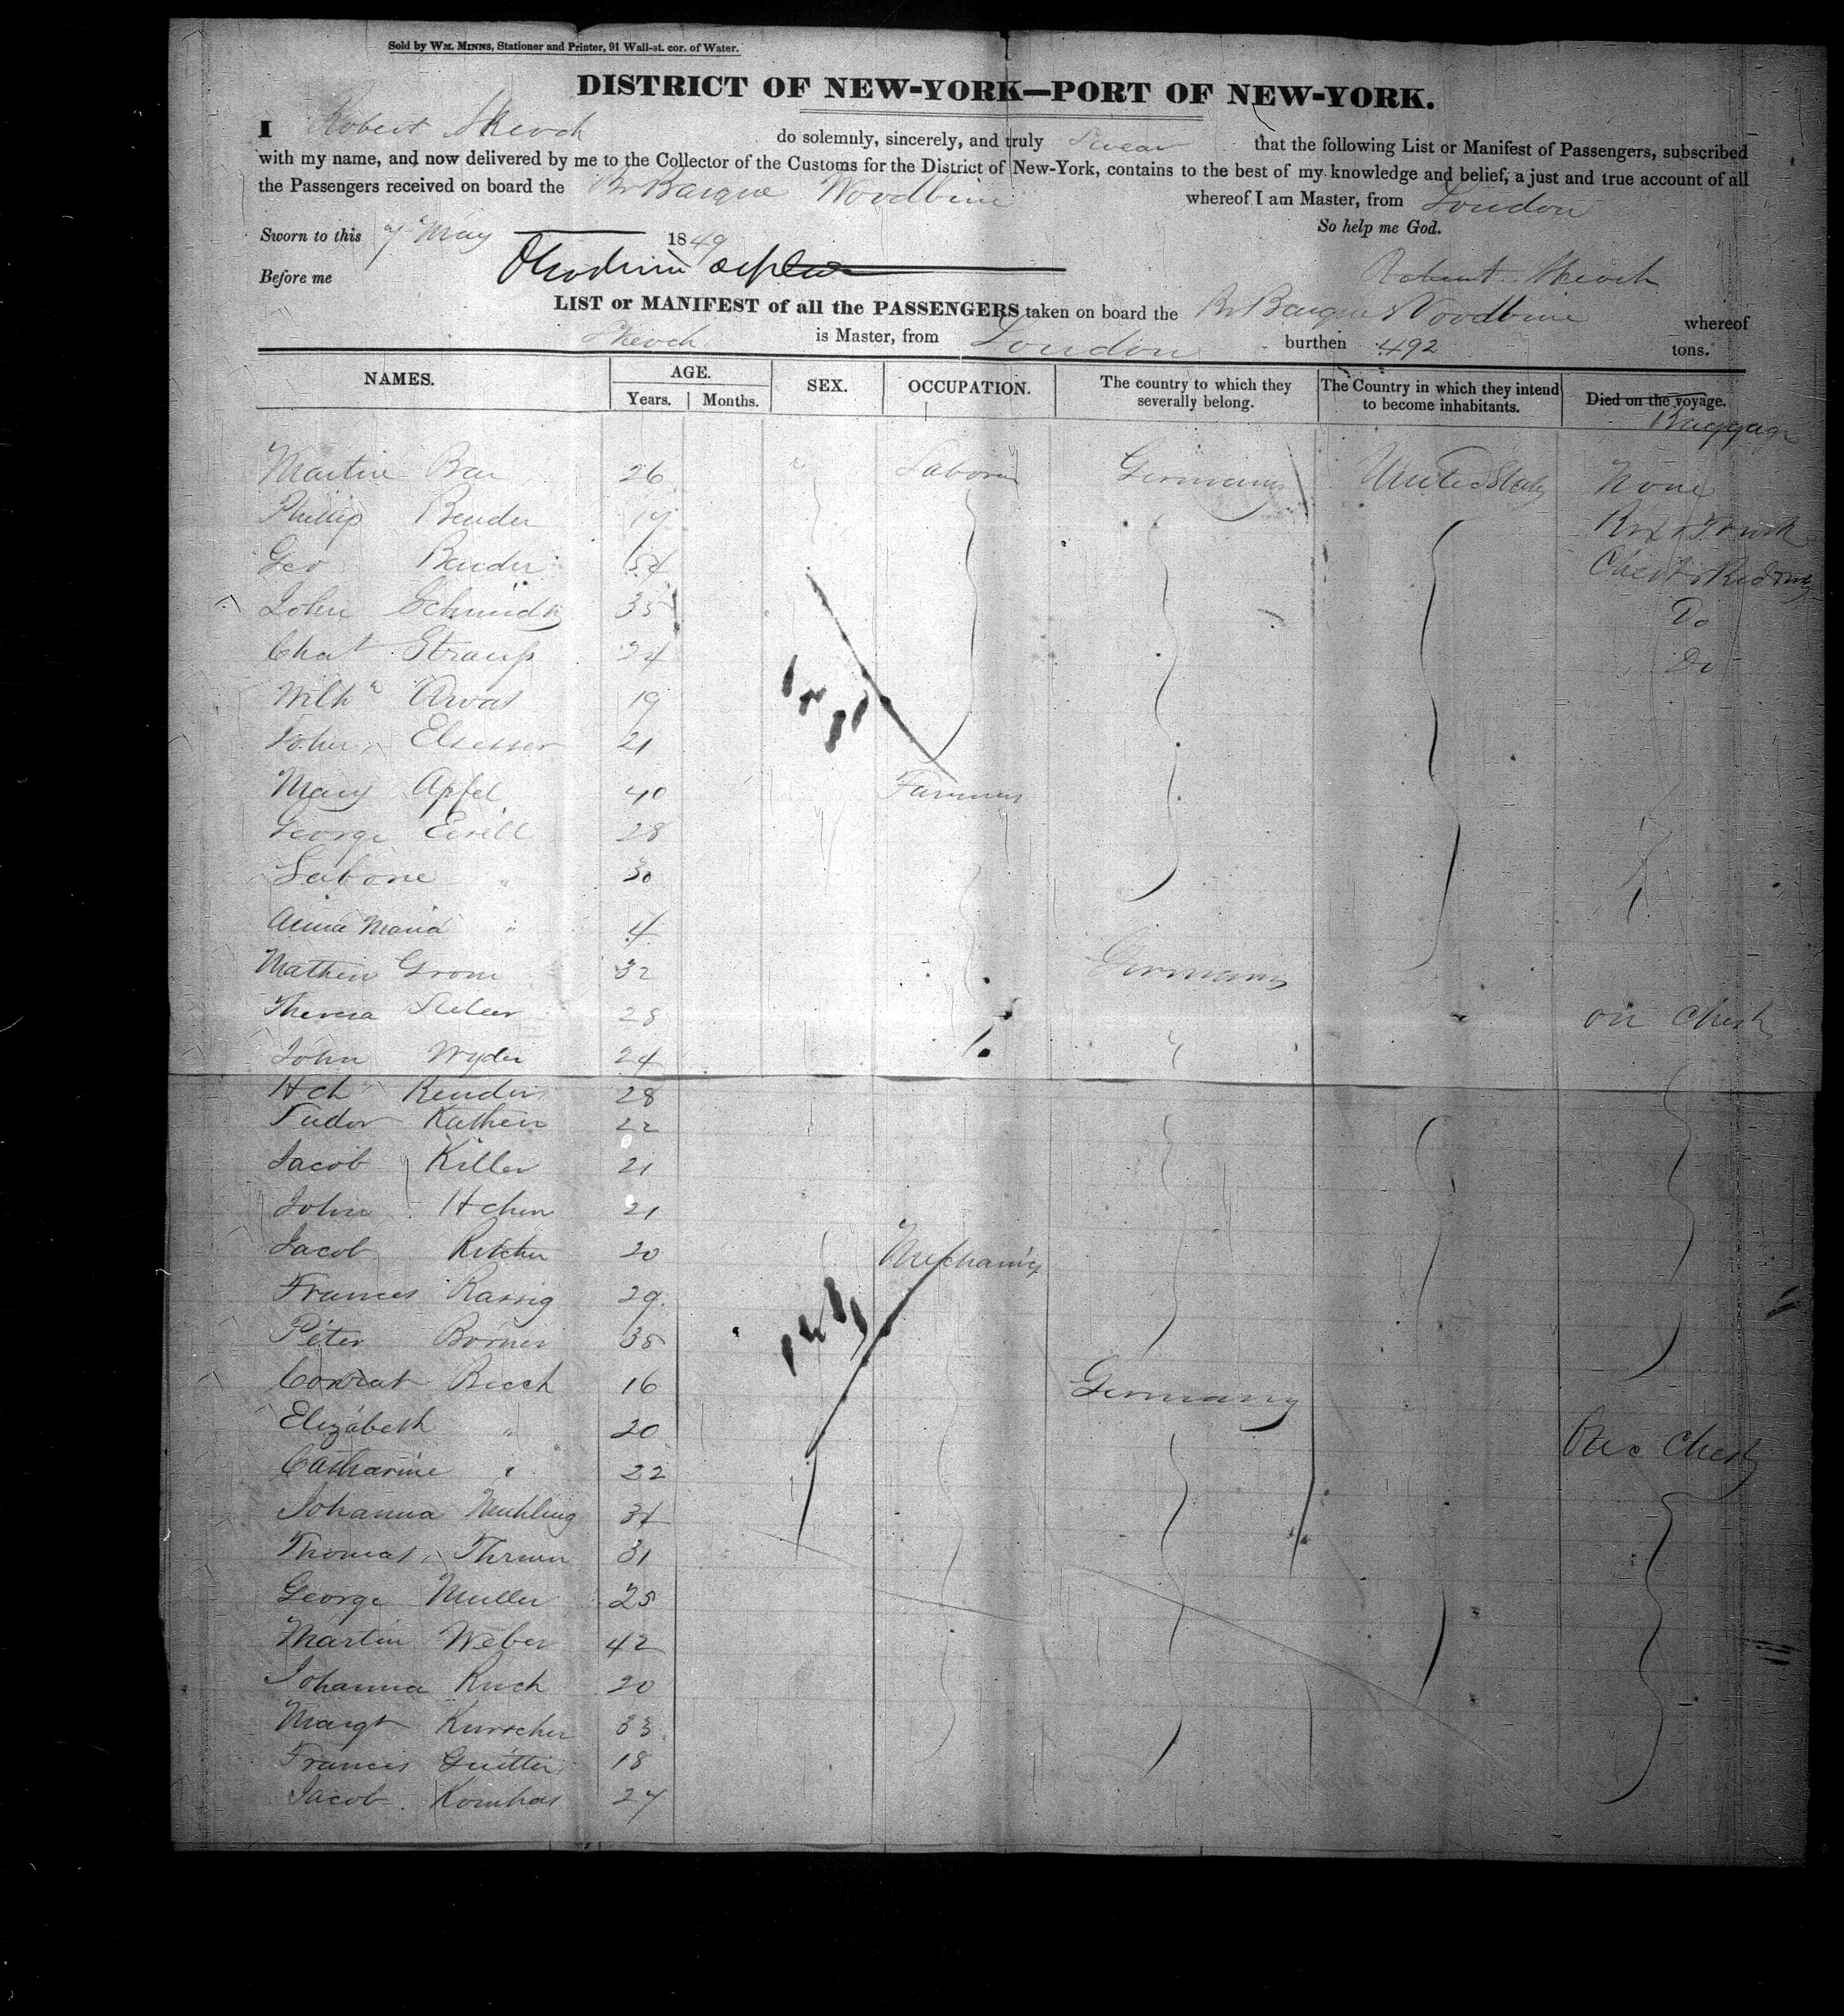 Sold by WM. MINNS, Stationer and Printer, 91 Wall-st. cor. of Water.
DISTRICT OF NEW-YORK—PORT OF NEW-YORK.
I Robert Skeoch do solemnly, sincerely, and truly Swear that the following List or Manifest of Passengers, subscribed
with my name, and now delivered by me to the Collector of the Customs for the District of New-York, contains to the best of my knowledge and belief, a just and true account of all
the Passengers received on board the Br Barque Woodbine whereof I am Master, from London
So help me God.
Sworn to this 7 May 1849
Before me
Robert Skeoch
LIST or MANIFEST of all the PASSENGERS taken on board the Br Barque Woodbine whereof
Skeoch is Master, from London burthen 492 tons.
NAMES. AGE. SEX. OCCUPATION. The country to which they severally belong. The Country in which they intend to become inhabitants. Died on the voyage.
Years. Months. Baggage
Martin Bar 26 Labourer Germany United States None
Phillip Bender 17 Box & Trunk
Geo Bender 54 Chest &
John Schmidt 35 Do
Strauss 24 Do
Wilhm 19
John Elsesser 21
Mary Apfel 40 Farmer
George 28
Sabone " 30
Anna Maria " 4
Grom 32 Germany
Theresa 28 on Chest
John Wyder 24
Hch Render 28
Tudor Kathein 22
Jacob Killer 21
John Hchen 21
Jacob Ritcher 20 Mechanics
Frances Rassig 29
Peter Borner 35
Conrat Beech 16 Germany
Elizabeth " 20 One Chest
Catharine " 22
Johanna Muhling 34
Thomas 31
George Muller 25
Martin Weber 42
Johanna Ruch 20
Margt Kurscher 33
Francis Guitter 18
Jacob Komhas 27